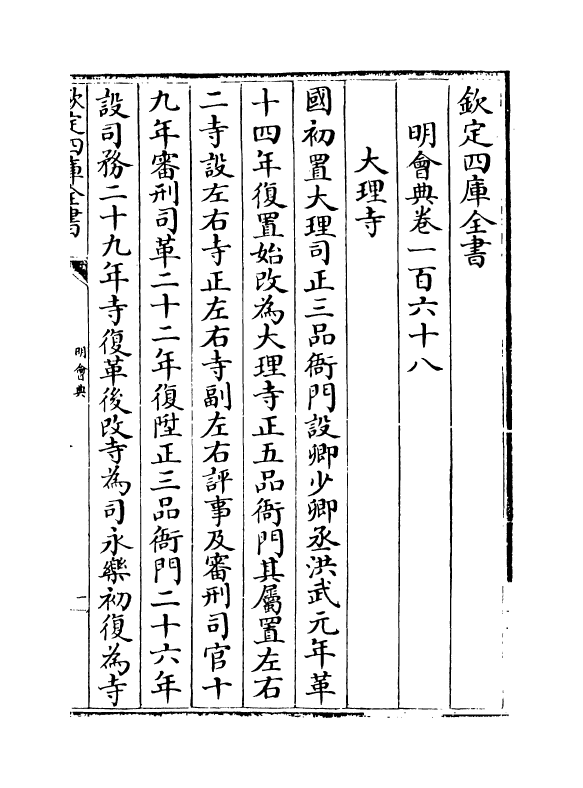 欽定四庫全書
明會典卷一百六十八
大理寺
國初置大理司正三品衙門設卿少卿丞洪武元年革
十四年復置始改為大理寺正五品衙門其屬置左右
二寺設左右寺正左右寺副左右評事及審刑司官十
九年審刑司革二十二年復陞正三品衙門二十六年
設司務二十九年寺復革後改寺為司永樂初復為寺
欽定四庫全書
明會典
一